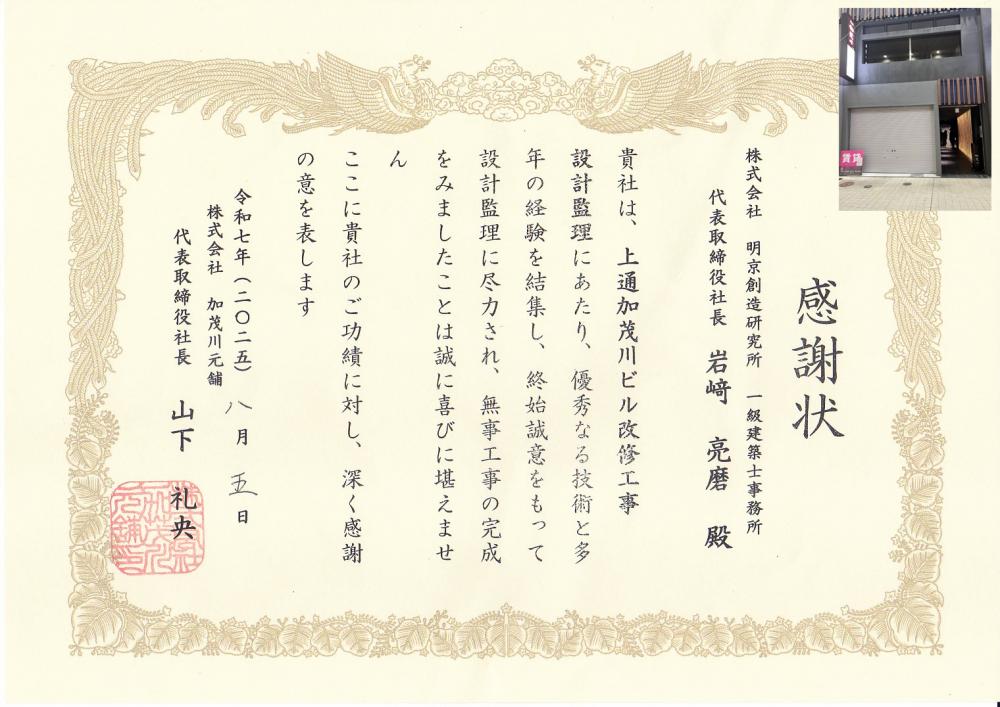 感謝状
株式会社 明京創造研究所 一級建築士事務所
代表取締役社長 岩﨑 亮磨 殿
貴社は、上通加茂川ビル改修工事
設計監理にあたり、優秀なる技術と多
年の経験を結集し、終始誠意をもって
設計監理に尽力され、無事工事の完成
をみましたことは誠に喜びに堪えませ
ん
ここに貴社のご功績に対し、深く感謝
の意を表します
令和七年(二〇二五)八月五日
株式会社 加茂川元舗
代表取締役社長 山下 礼央
賃貸